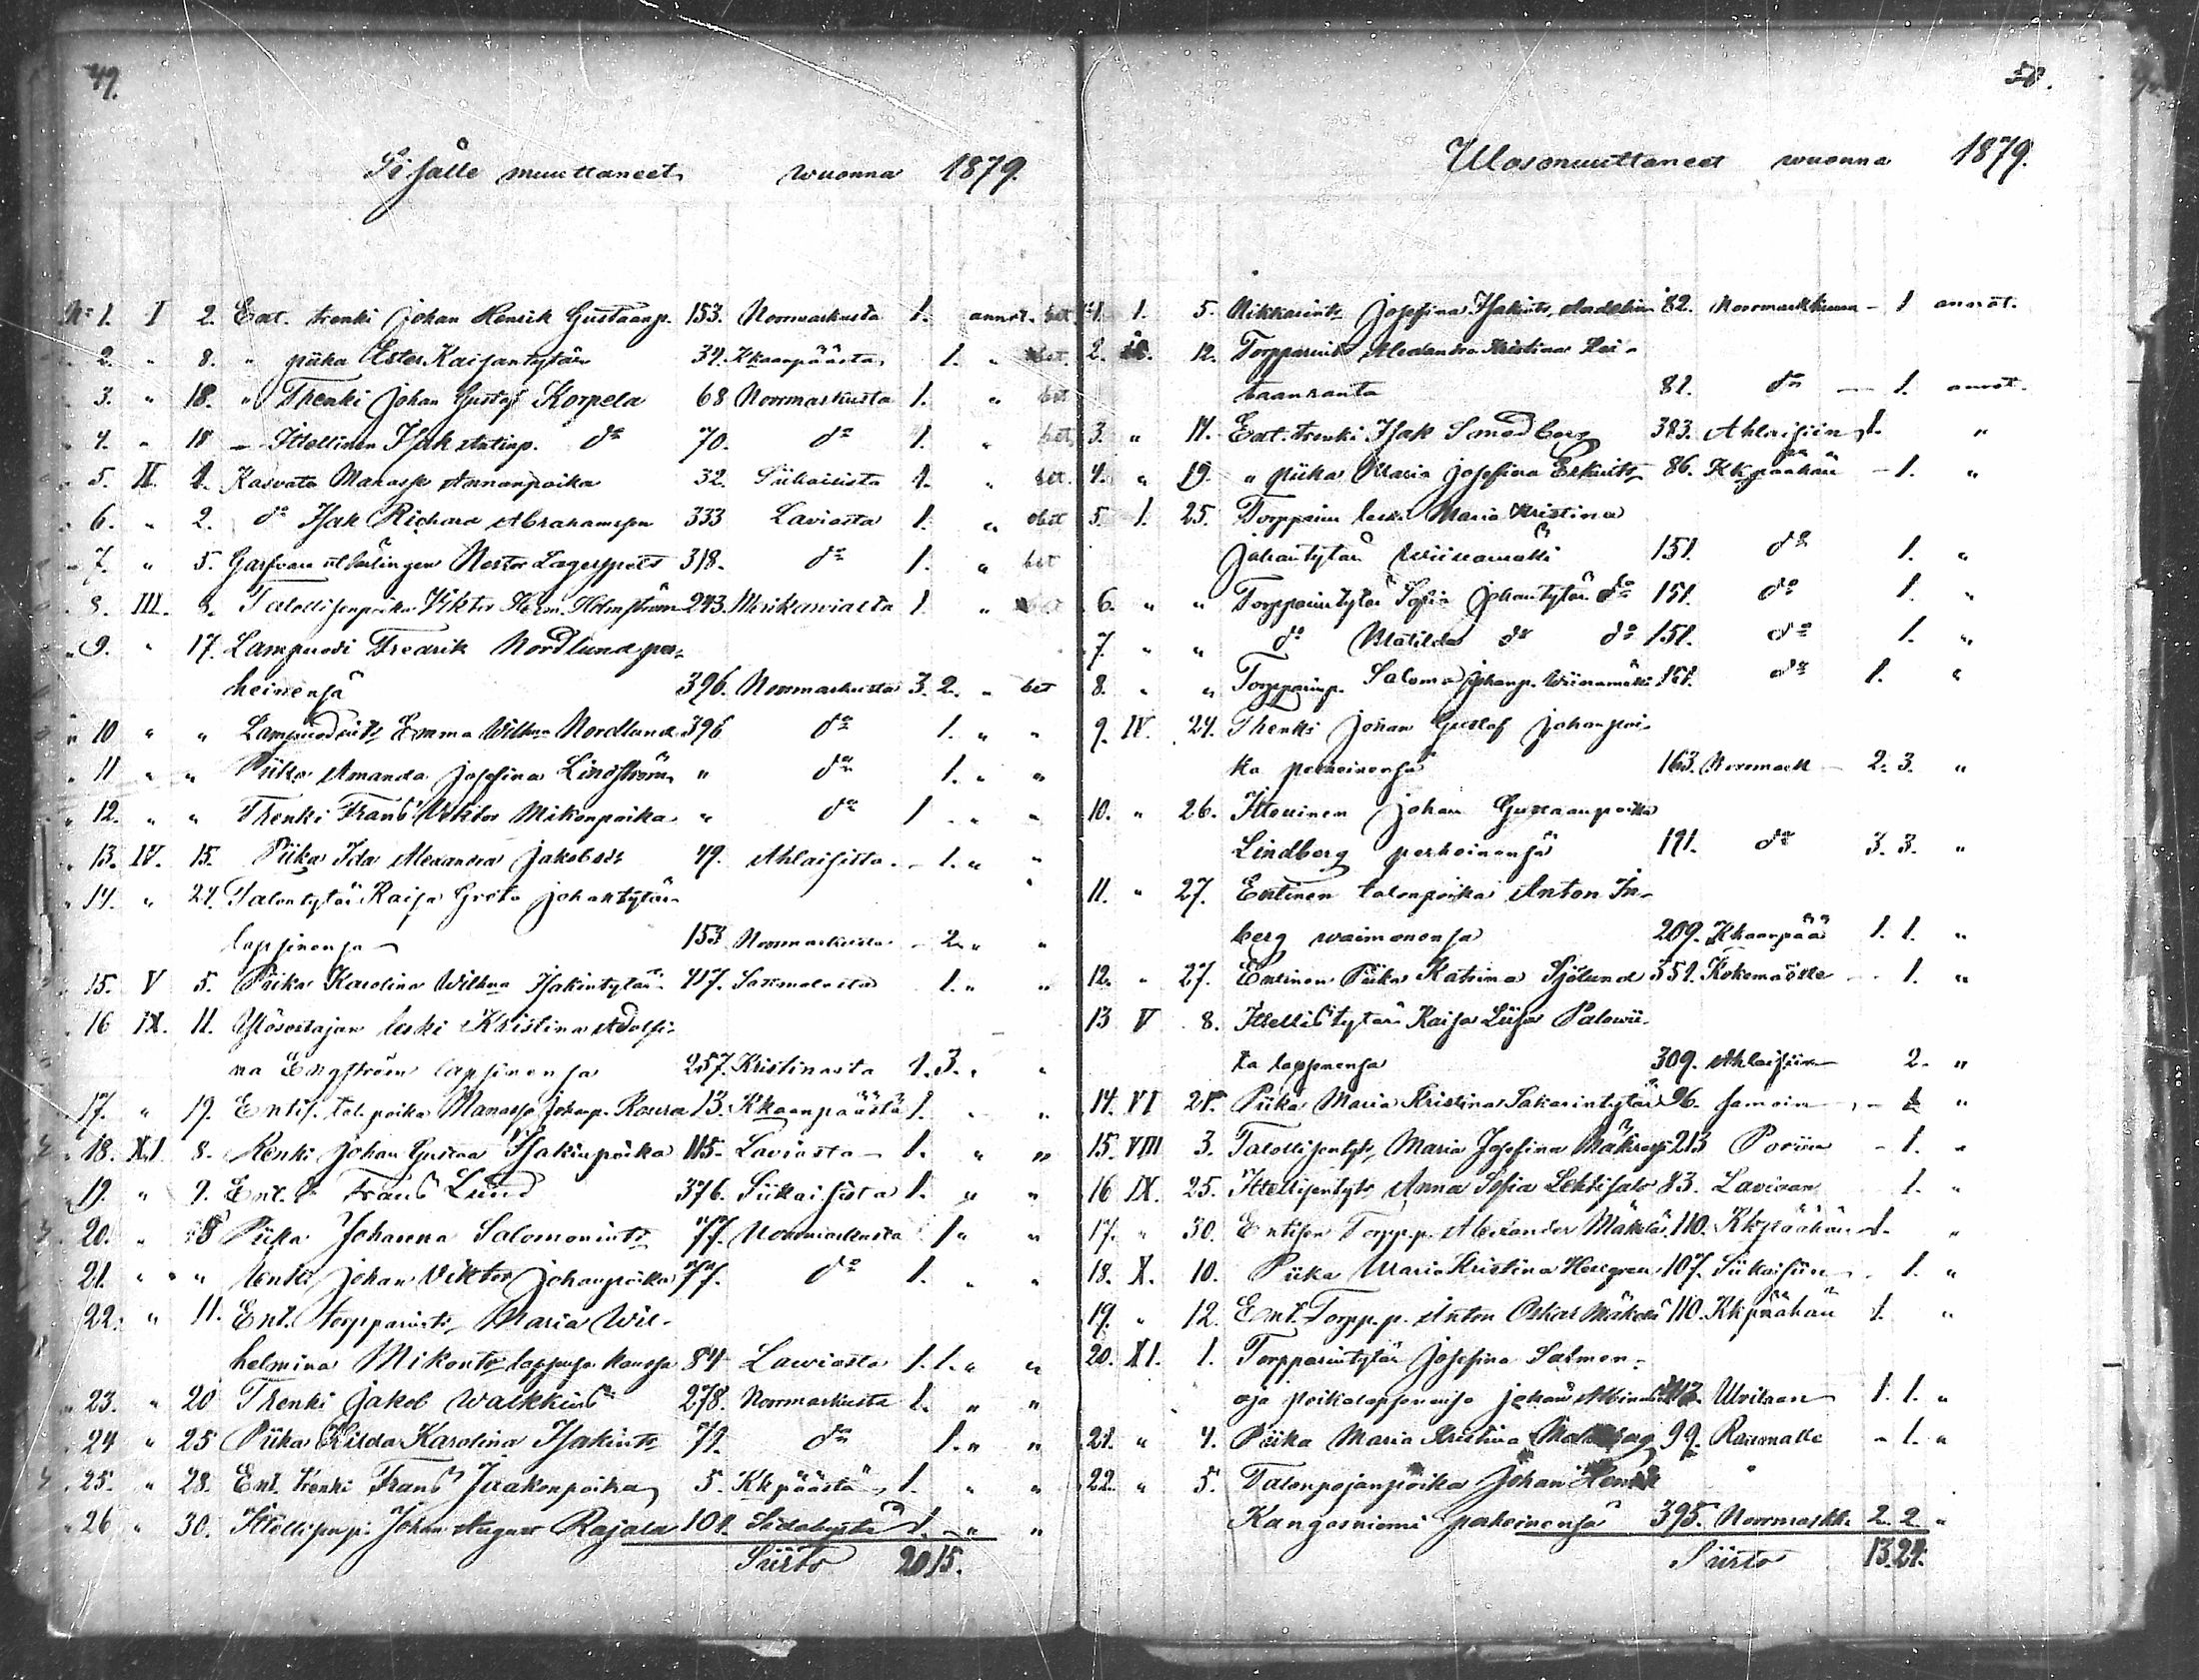 49.
Sisälle muuttaneet wuonna 1879.
No 1. I 2. Ent. trenki Johan Henrik Gustaanp. 153. Norrmarkusta 1. annot. bet
" 2. " 8. " piika Ester Kaisantytär 34. Kkaanpäästä 1. " bet.
" 3. " 18. " Thenki Johan Gustaf Korpela 68 Norrmarkusta 1. " bet
" 4. " 18 Ittellinen Isak do 70. do 1. " bet
" 5. II. 1. Kasvato Manasse Annanpoika 32. Siikaisista 1. " bet.
" 6. " 2. do Isak Richard Abrahamsson 333 Laviasta 1. "
" 7. " 5. Nestor Lagerspets 318. do 1. " bet
" 8. III. Talollisenpoika Viktor Herm. Holmström 243. Merikarvialta 1. "
" 9. " 17. Lampuodi Fredrik Nordlund per-
heinensä 396. Norrmarkusta 3. 2. " bet
" 10 " " Lampuodints Emma Wilhna Nordlund 396 do 1. " "
" 11 " " Piika Amanda Josefina Lindström " do 1. " "
" 12. " " Thenki Frans Viktor Mikonpoika " do 1 " "
" 13. IV. 15. Piika Ida Alexandra Jakobsdr 49. Ahlaisista 1. " "
" 14. " 24. Talontytär Kaisa Greta Johantytär
lapsinensa 153 Norrmarkusta 2. " "
" 15. V 5. Piika Karolina Wilhna Isakintytär 417. 1. " "
" 16 IX. 11. leski Kristina Adolfi-
na Engström lapsinensa 257. Kristinasta 1. 3. " "
" 17. " 19. Entis. tal. poika Manasse Johanp. Roura 13. Kkaanpäästä 1. " "
" 18. XI 8. Renki Johan Gustaa Isakinpoika 115. Laviasta 1. " "
" 19. " 9. Ent. Frans Lund 376. Siikaisista 1. " "
" 20. " 8 Piika Johanna Salomonints 77. Norrmarkusta 1 " "
" 21. " " Renki Johan Viktor Johanpoika 77. do 1. " "
" 22. " 11. Ent. torpparints Maria Wil-
helmina Mikonts lapsensa kanssa 84 Lawiasta 1. 1. " "
" 23. " 20 Thenki Jakob Walkkius 278. Norrmarkusta 1. " "
" 24 " 25 Piika Hilda Karolina Isakints 79. do 1. " "
" 25. " 28. Ent. trenki Frans Jaakonpoika 5. Kkpäästä 1. " "
" 26 " 30. Johan August Rajala 101. 1. " "
Siirto 20 15.
50.
Ulosmuuttaneet wuonna 1879.
1. 1. 5. Nikkarints Josefina Isakints 82. 1 annot.
2. 12. Torpparints Alexandra Kristina Hei-
taanranta 82. do 1. annot.
3. " 14. Ent. trenki Isak Smedberg 383. Ahlaisiin 1. "
4. " 19. " piika Maria Josefina Erkints 86. Kkpäähän 1. "
5. 1. 25. Torpparin leski Maria Kristina
Johantytär Wiinamäki 151. do 1. "
6. " " Torpparintytär Sofia Johantytär do 151. do 1. "
7. " " do Matilda do do 151. do 1. "
8. " " Torpparinp. Salomo Johanp. Wiinamäki 151. do 1. "
9. IV. 24. Thenki Johan Gustaf Johanpoi-
ka perheinensä 163. Norrmark 2. 3. "
10. " 26. Johan Gustaanpoika
Lindberg perheinensä 191. do 3. 3. "
11. " 27. Entinen talonpoika Anton In-
berg waimonensa 209. Kkaanpää 1. 1. "
12. " 27. Entinen Piika Katrina Sjölund 351. Kokemäelle 1. "
13 V 8. Ittellistytär Kaisa Liisa Palowii-
ta lapsinensa 309. Ahlaisiin 2. "
14. VI 21. Piika Maria Kristina Sakarintytär 96. samoin 1. "
15. VIII 3. Talollisentyts. Maria Josefina 213 Poriin 1. "
16 IX. 25. Ittellisentyts Anna Sofia Lehtisalo 83. Laviaan 1. "
17. " 30. Entisen Torpp. p. Alexander Mäkelä 110. Kkpäähän 1. "
18. X. 10. Piika Maria Kristina Hellgren 107. Siikaisiin 1. "
19. " 12. Ent. Torpp. p. Anton Oskar Mäkelä 110. Kkpäähän 1. "
20. XI. 1. Torpparintytär Josefina Salmen-
oja poikalapsensa Johan Ulvilaan 1. 1. "
21. " 4. Piika Maria Kristina 99. Raumalle 1. "
22. " 5. Talonpojanpoika Johan Henrik
Kangasniemi perheinensä 395. Norrmarkk. 2. 2 "
Siirto 13. 24.